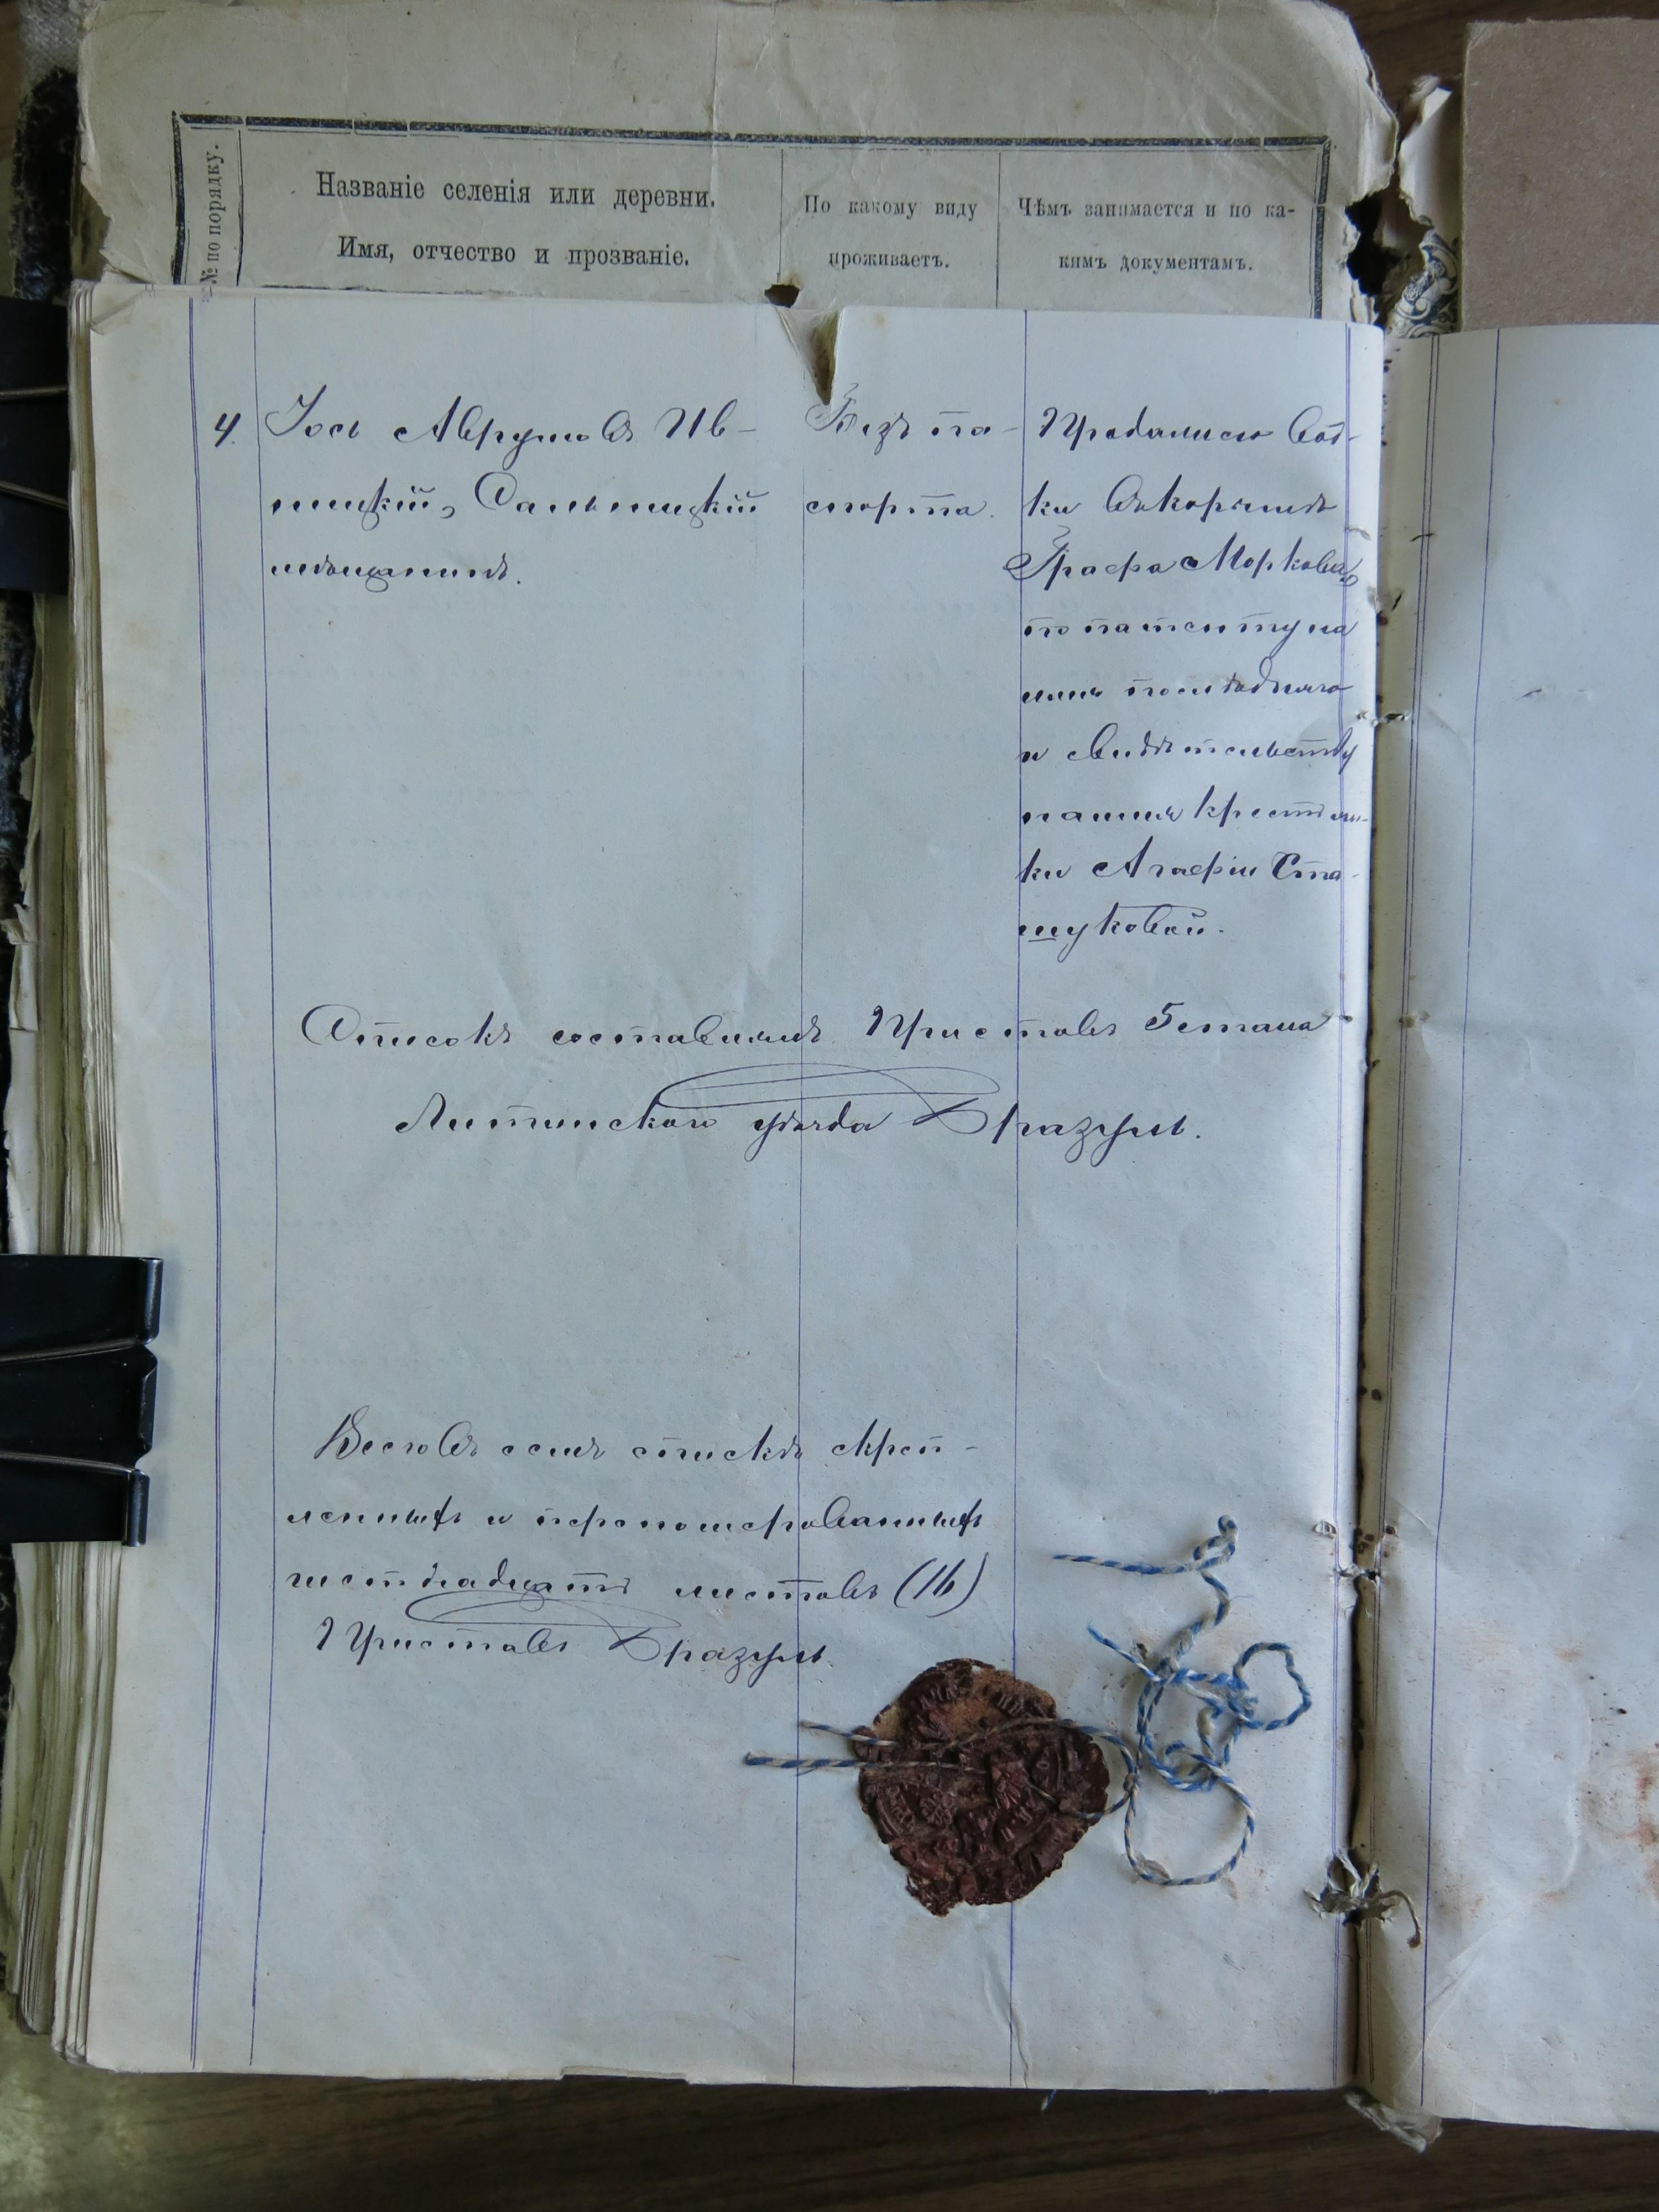 № по порядку.
Названіе селенія или деревни.
Имя, отчество и прозваніе.
По какому виду
проживаетъ.
Чѣмъ занимается и по ка-
кимъ документамъ.
4.
Іось Аврумовъ Ив-
ницкій, Сальницкій
мѣщанинъ.
Безъ па-
спорта.
Продажею вод-
ки въ корчмѣ
Графа Моркова,
по патенту на
имя послѣдняго
и свидѣтельству
на имя крестьян-
ки Агафіи Ста-
шуковой.
Списокъ составилъ Приставъ 5 стана
Литинскаго уѣзда Бразуль.
Всего въ семъ спискѣ скрѣп-
ленныхъ и перенумерованныхъ
шестнадцать листовъ (16)
Приставъ Бразуль.